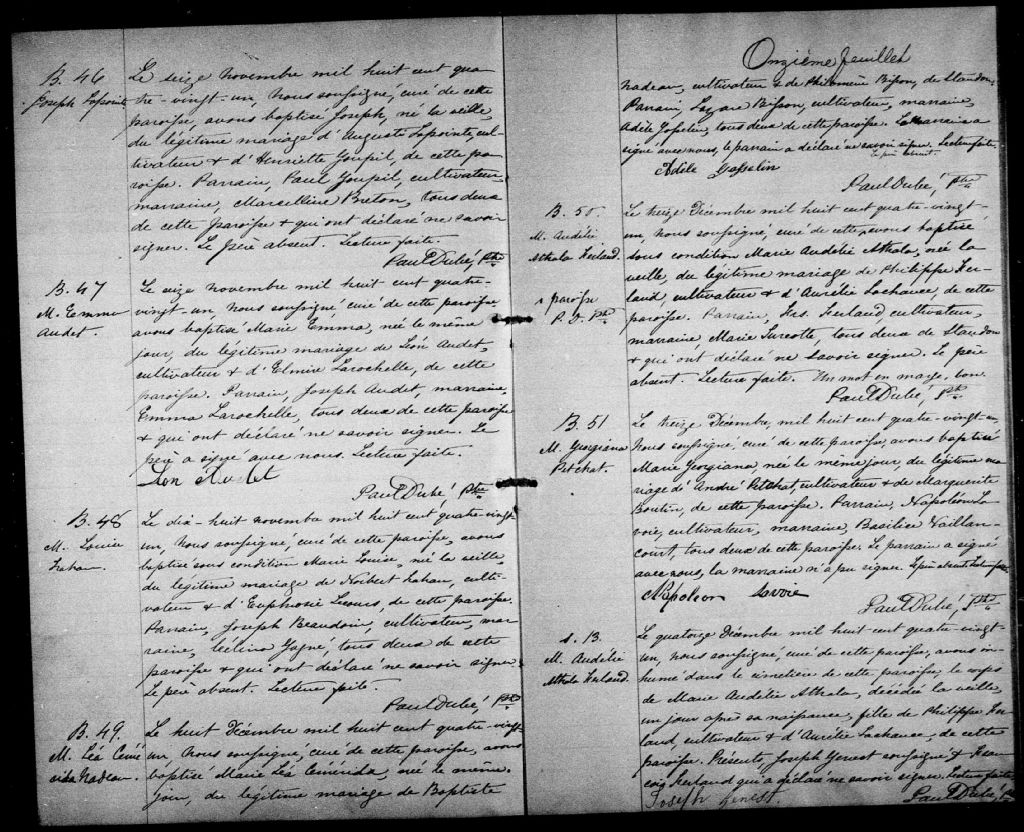 B. 46
Joseph Lapointe
Le seize novembre mil huit cent qua
tre-vingt-un, Nous soussigné, curé de cette
paroisse, avons baptisé Joseph, né la veille,
du légitime mariage d'Auguste Lapointe, cul-
tivateur & d'Henriette Goupil, de cette pa
roisse. Parrain, Paul Goupil, cultivateur
marraine, Marcelline Breton, tous deux
de cette paroisse & qui ont déclaré ne savoir
signer. Le père absent. Lecture faite.
Paul Dubé, Ptre
B. 47
M. Emma
Audet.
Le seize novembre mil huit cent quatre-
vingt-un, Nous soussigné, curé de cette paroisse,
avons baptisé Marie Emma, née le même
jour, du légitime mariage de Léon Audet,
cultivateur & d'Elmire Larochelle, de cette
paroisse. Parrain, Joseph Audet, marraine,
Emma Larochelle, tous deux de cette paroisse
& qui ont déclaré ne savoir signer. Le
père a signé avec nous. Lecture faite.
Léon Audet
Paul Dubé, Ptre
B. 48
M. Louise
Le dix-huit novembre mil huit cent quatre-vingt
un, Nous soussigné, curé de cette paroisse, avons
baptisé sous condition Marie Louise, née la veille,
du légitime mariage de Norbert culti-
vateur & d'Euphrosie Lecours, de cette paroisse.
Parrain, Joseph Beaudoin, cultivateur, mar
raine, Gagné, tous deux de cette
paroisse & qui ont déclaré ne savoir signer.
Le père absent. Lecture faite.
Paul Dubé, Ptre
B. 49.
M. Léa Céné
rida Nadeau.
Le huit Décembre mil huit cent quatre-vingt
un, Nous soussigné, curé de cette paroisse, avons
baptisé Marie Léa Cénérida, née le même
jour, du légitime mariage de Baptiste
Onzième feuillet
Nadeau, cultivateur & de Philomène Bisson, de Standon.
Parrain, Lazare Bisson, cultivateur, marraine,
Adèle Gosselin, tous deux de cette paroisse. La marraine a
signé avec nous, le parrain a déclaré ne savoir signer. Lecture faite.
Le père absent.
Adèle Gosselin
Paul Dubé, Ptre
B. 50.
M. Audélie
Athala Ferland.
& paroisse
P. D. Ptre
Le treize Décembre mil huit cent quatre-vingt-
un, Nous soussigné, curé de cette, avons baptisé
sous condition Marie Audélie Athala, née la
veille, du légitime mariage de Philippe Fer-
land, cultivateur & d'Aurélie Lachance, de cette
paroisse. Parrain, Frs. Ferland cultivateur,
marraine Marie Turcotte, tous deux de Standon
& qui ont déclaré ne savoir signer. Le père
absent. Lecture faite. Un mot en marge, bon.
Paul Dubé, Ptre
B. 51
M. Georgiana
Petchat.
Le treize Décembre mil huit cent quatre-vingt-un
Nous soussigné, curé de cette paroisse, avons baptisé
Marie Georgiana née le même jour du légitime ma
riage d'André Petchat, cultivateur & de Marguerite
Boutin, de cette paroisse. Parrain, Napoléon La
voie, cultivateur, marraine, Basilice Vaillan-
court, tous deux de cette paroisse. Le parrain a signé
avec nous, la marraine n'a pu signer. Le père absent. Lecture faite
Napoleon Lavoie
Paul Dubé, Ptre
S. 13.
M. Audélie
Athala Ferland.
Le quatorze Décembre mil huit cent quatre-vingt-
un, nous soussigné, curé de cette paroisse, avons in-
humé dans le cimetière de cette paroisse, le corps
de Marie Audélie Athala, décédée la veille,
un jour après sa naissance, fille de Philippe Fer
land, cultivateur & d'Aurélie Lachance, de cette
paroisse. Présents, Joseph Genest soussigné & Fran
çois Ferland qui a déclaré ne savoir signer. Lecture faite
Joseph Genest.
Paul Dubé, Ptre